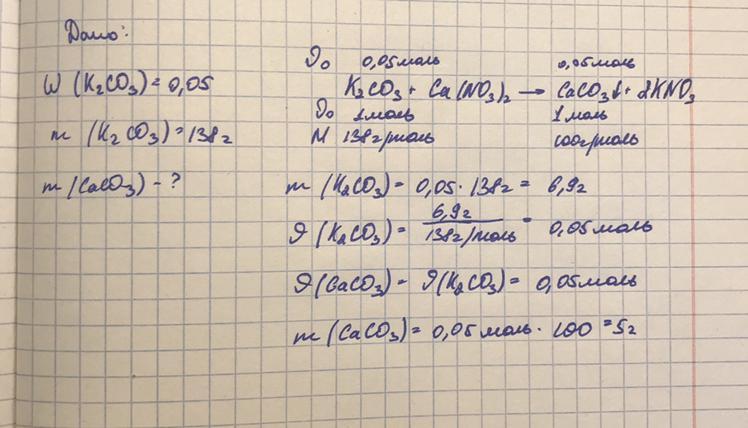 Дано:
W (K₂CO₃) = 0,05
m (K₂CO₃) = 138г
m (CaCO₃) - ?
ν₀ 0,05моль 0,05моль
K₂CO₃ + Ca(NO₃)₂ → CaCO₃↓ + 2KNO₃
ν₀ 1моль 1моль
M 138г/моль 100г/моль
m (K₂CO₃) = 0,05 · 138г = 6,9г
ν (K₂CO₃) = 6,9г / 138г/моль = 0,05моль
ν (CaCO₃) = ν (K₂CO₃) = 0,05моль
m (CaCO₃) = 0,05моль · 100 = 5г